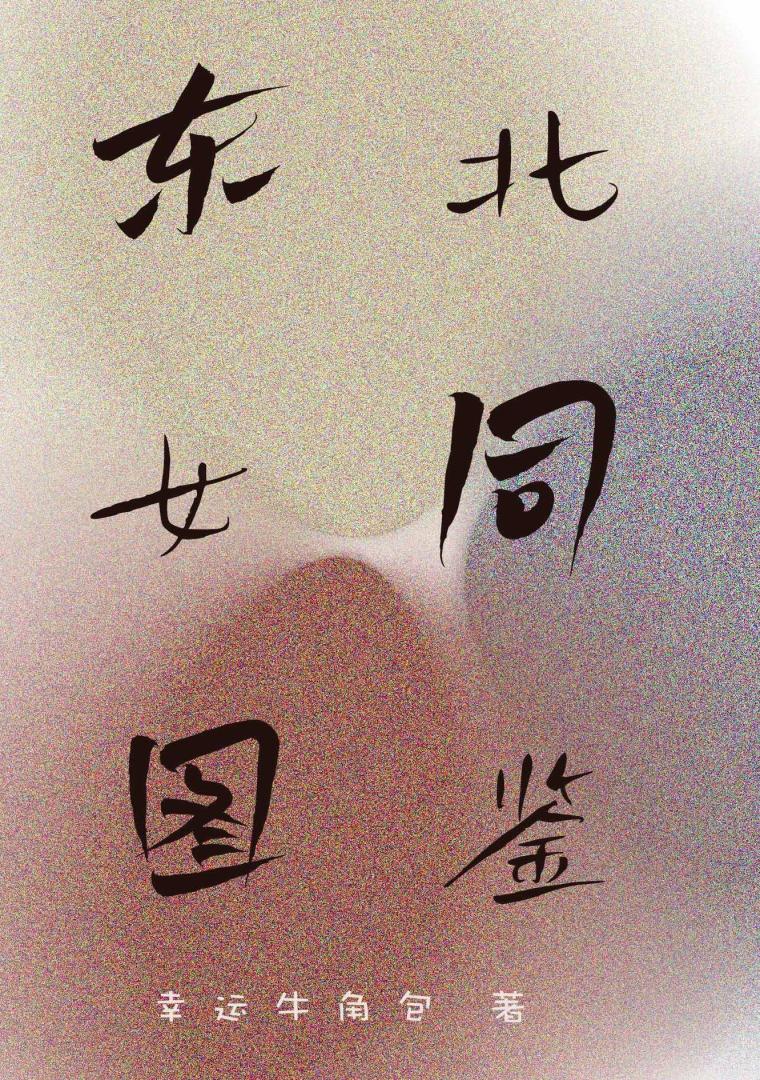 东北
女同
图鉴
幸运牛角包 著